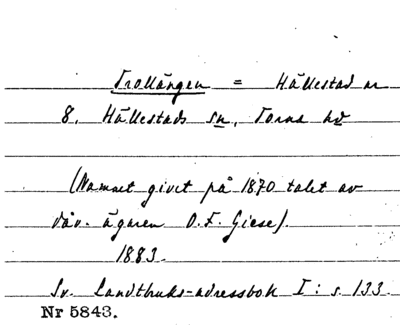 Trollängen = Hällestad nr
8. Hällestads sn, Torna hd
(Namnet givet på 1870 talet av
däv. ägaren O.F. Giese).
1883.
Sv. Landtbruks-adressbok I: s. 133
Nr 5843.